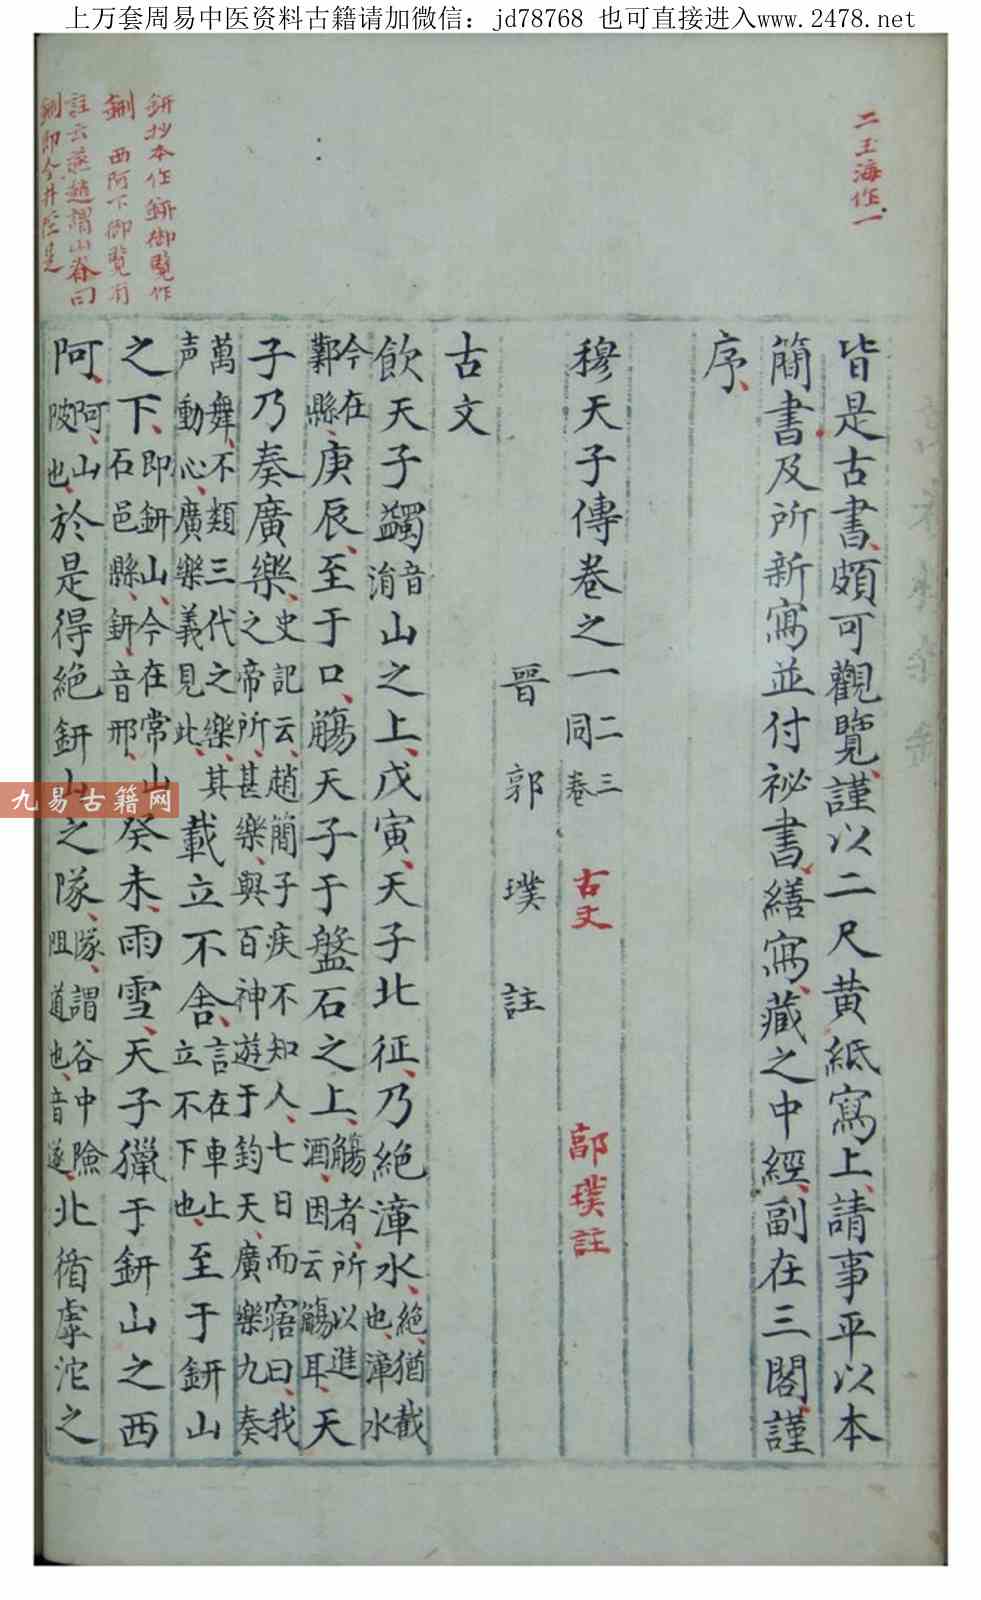 上万套周易中医资料古籍请加微信：jd78768 也可直接进入www.2478.net
二玉海作一
鈃抄本作鈃御覽作
鉶 西阿下御覽有
註云燕趙謂山脊曰
鉶即今井陘是
皆是古書頗可觀覽謹以二尺黄紙寫上請事平以本
簡書及所新寫並付祕書繕寫藏之中經副在三閣謹
序
穆天子傳卷之一二三同卷 古文 郭璞註
晉 郭 璞 註
古文
飲天子蠲音涓山之上戊寅天子北征乃絶漳水絶猶截也漳水
今在鄴縣庚辰至于口觴天子于盤石之上觴者所以進酒因云觴耳天
子乃奏廣樂史記云趙簡子疾不知人七日而寤曰我之帝所甚樂與百神遊于鈞天廣樂九奏
萬舞不類三代之樂其声動心廣樂義見此載立不舍言在車上立不下也至于鈃山
之下即鈃山今在常山石邑縣鈃音邢癸未雨雪天子獵于鈃山之西
阿阿山陂也於是得絶鈃山之隊隊謂谷中險阻道也音遂北循虖沱之
九易古籍网